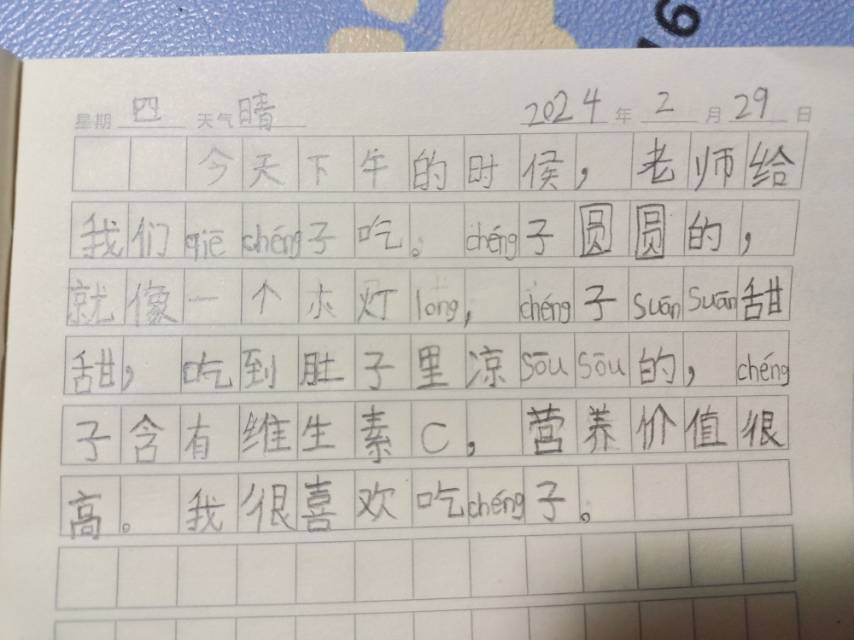 星期 四 天气 晴 2024 年 2 月 29 日
今天下午的时侯，老师给
我们qiēchéng子吃。chéng子圆圆的，
就像一个小灯long，chéng子suānsuān甜
甜，吃到肚子里凉sōusōu的，chéng
子含有维生素C，营养价值很
高。我很喜欢吃chéng子。